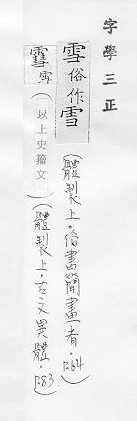 字學三正
雪俗作雪(體製上·俗書簡畫者·P.64)
(以上史籀文)(體製上·古文異體·P.83)